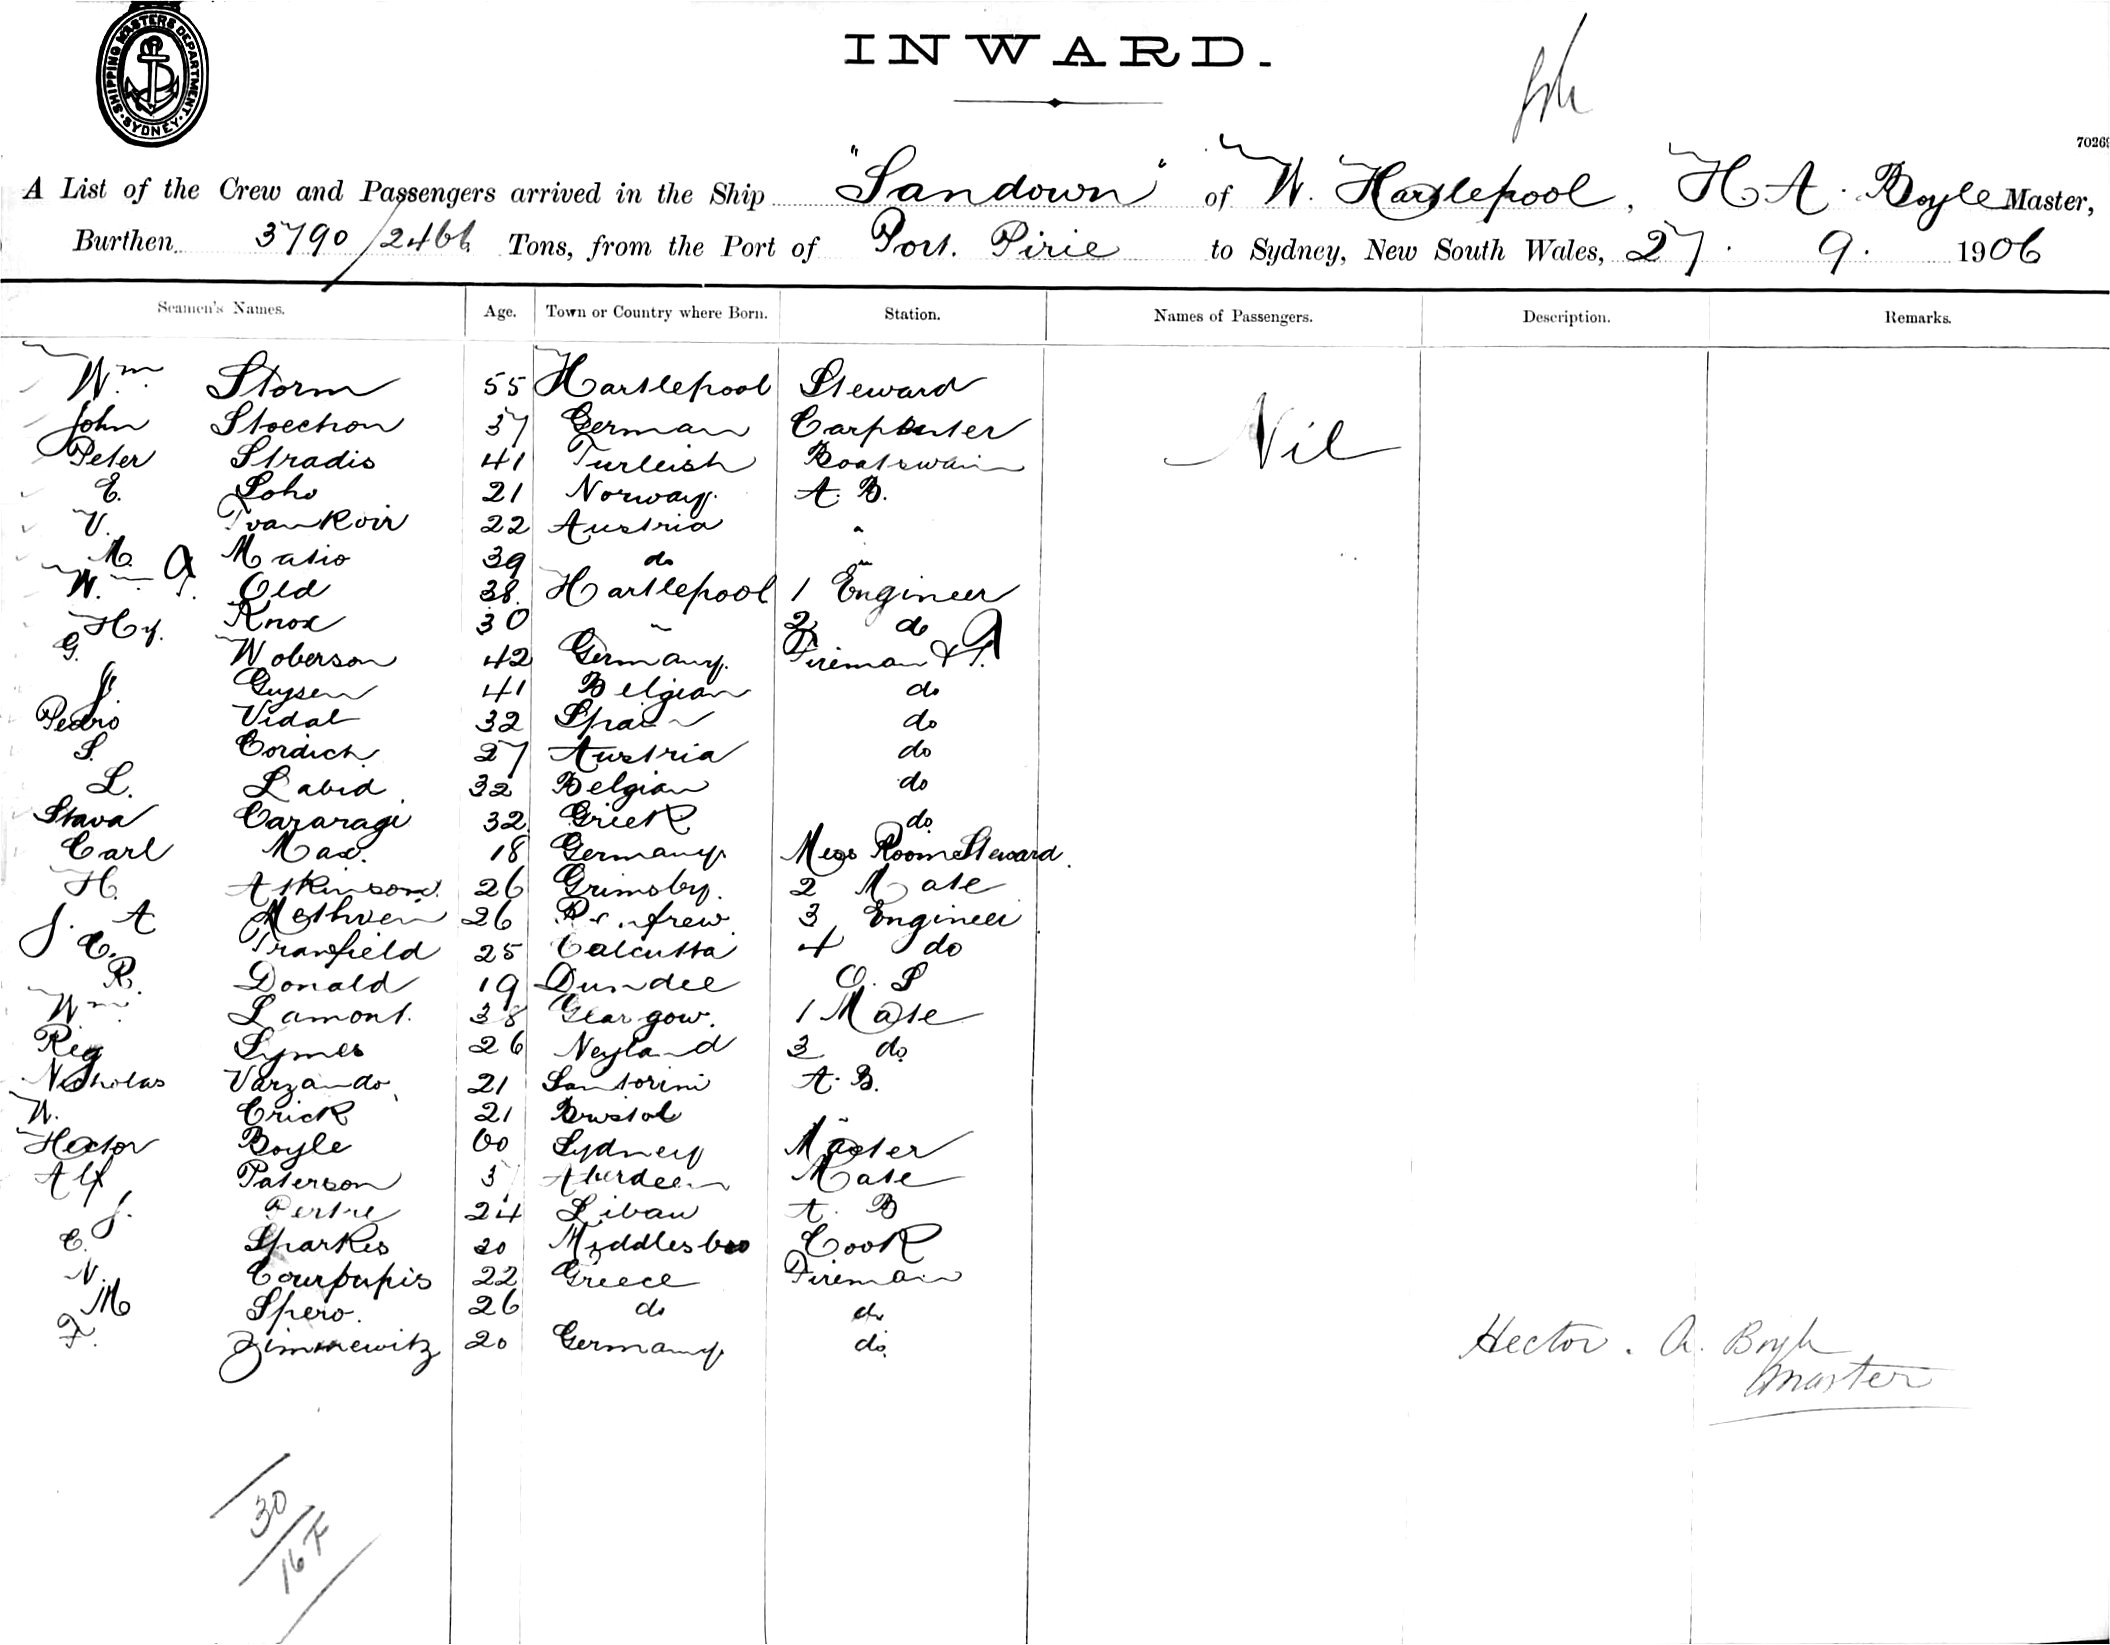 SHIPPING MASTERS DEPARTMENT
SYDNEY
INWARD.
70269
A List of the Crew and Passengers arrived in the Ship "Sandown" of W. Hartlepool, H. A. Boyle Master,
Burthen 3790/2466 Tons, from the Port of Port. Pirie to Sydney, New South Wales, 27. 9. 1906
Seamen's Names. Age. Town or Country where Born. Station. Names of Passengers. Description. Remarks.
Wm. Storm 55 Hartlepool Steward
John Stoechon 37 German Carpenter Nil
Peter Stradis 41 Turkish Boatswain
E. Soho 21 Norway. A. B.
V. Ivankoir 22 Austria "
M. Matio 39 do "
W. A. Old 38. Hartlepool 1 Engineer
Hy. Knox 30 " 2 do
G. Woberson 42 Germany. Fireman & T.
J. Guysen 41 Belgian do
Pedro Vidal 32 Spain do
S. Cordich 27 Austria do
L. Labid 32 Belgian do
Stava Cararagi 32 Greek do
Carl Max. 18 Germany Mess Room Steward.
H. Atkinson. 26 Grimsby. 2 Mate
J. A Methven 26 Renfrew. 3 Engineer
C. Tranfield 25 Calcutta 4 do
R. Donald 19 Dundee O. S
Wm. Lamont. 38 Glasgow. 1 Mate
Reg Symes 26 Neyland 3 do
Nicholas Varzando 21 Santorini A. B.
W. Crick 21 Bristol "
Hector Boyle 60 Sydney Master
Alf Paterson 37 Aberdeen Mate
J. Pertre 24 Libau A. B
C. Sparkes 20 Middlesbro Cook
N. Courpupis 22 Greece Fireman
M Spero. 26 do do
F. Zimmewitz 20 Germany do.
Hector. A. Boyle
Master
30
16 F